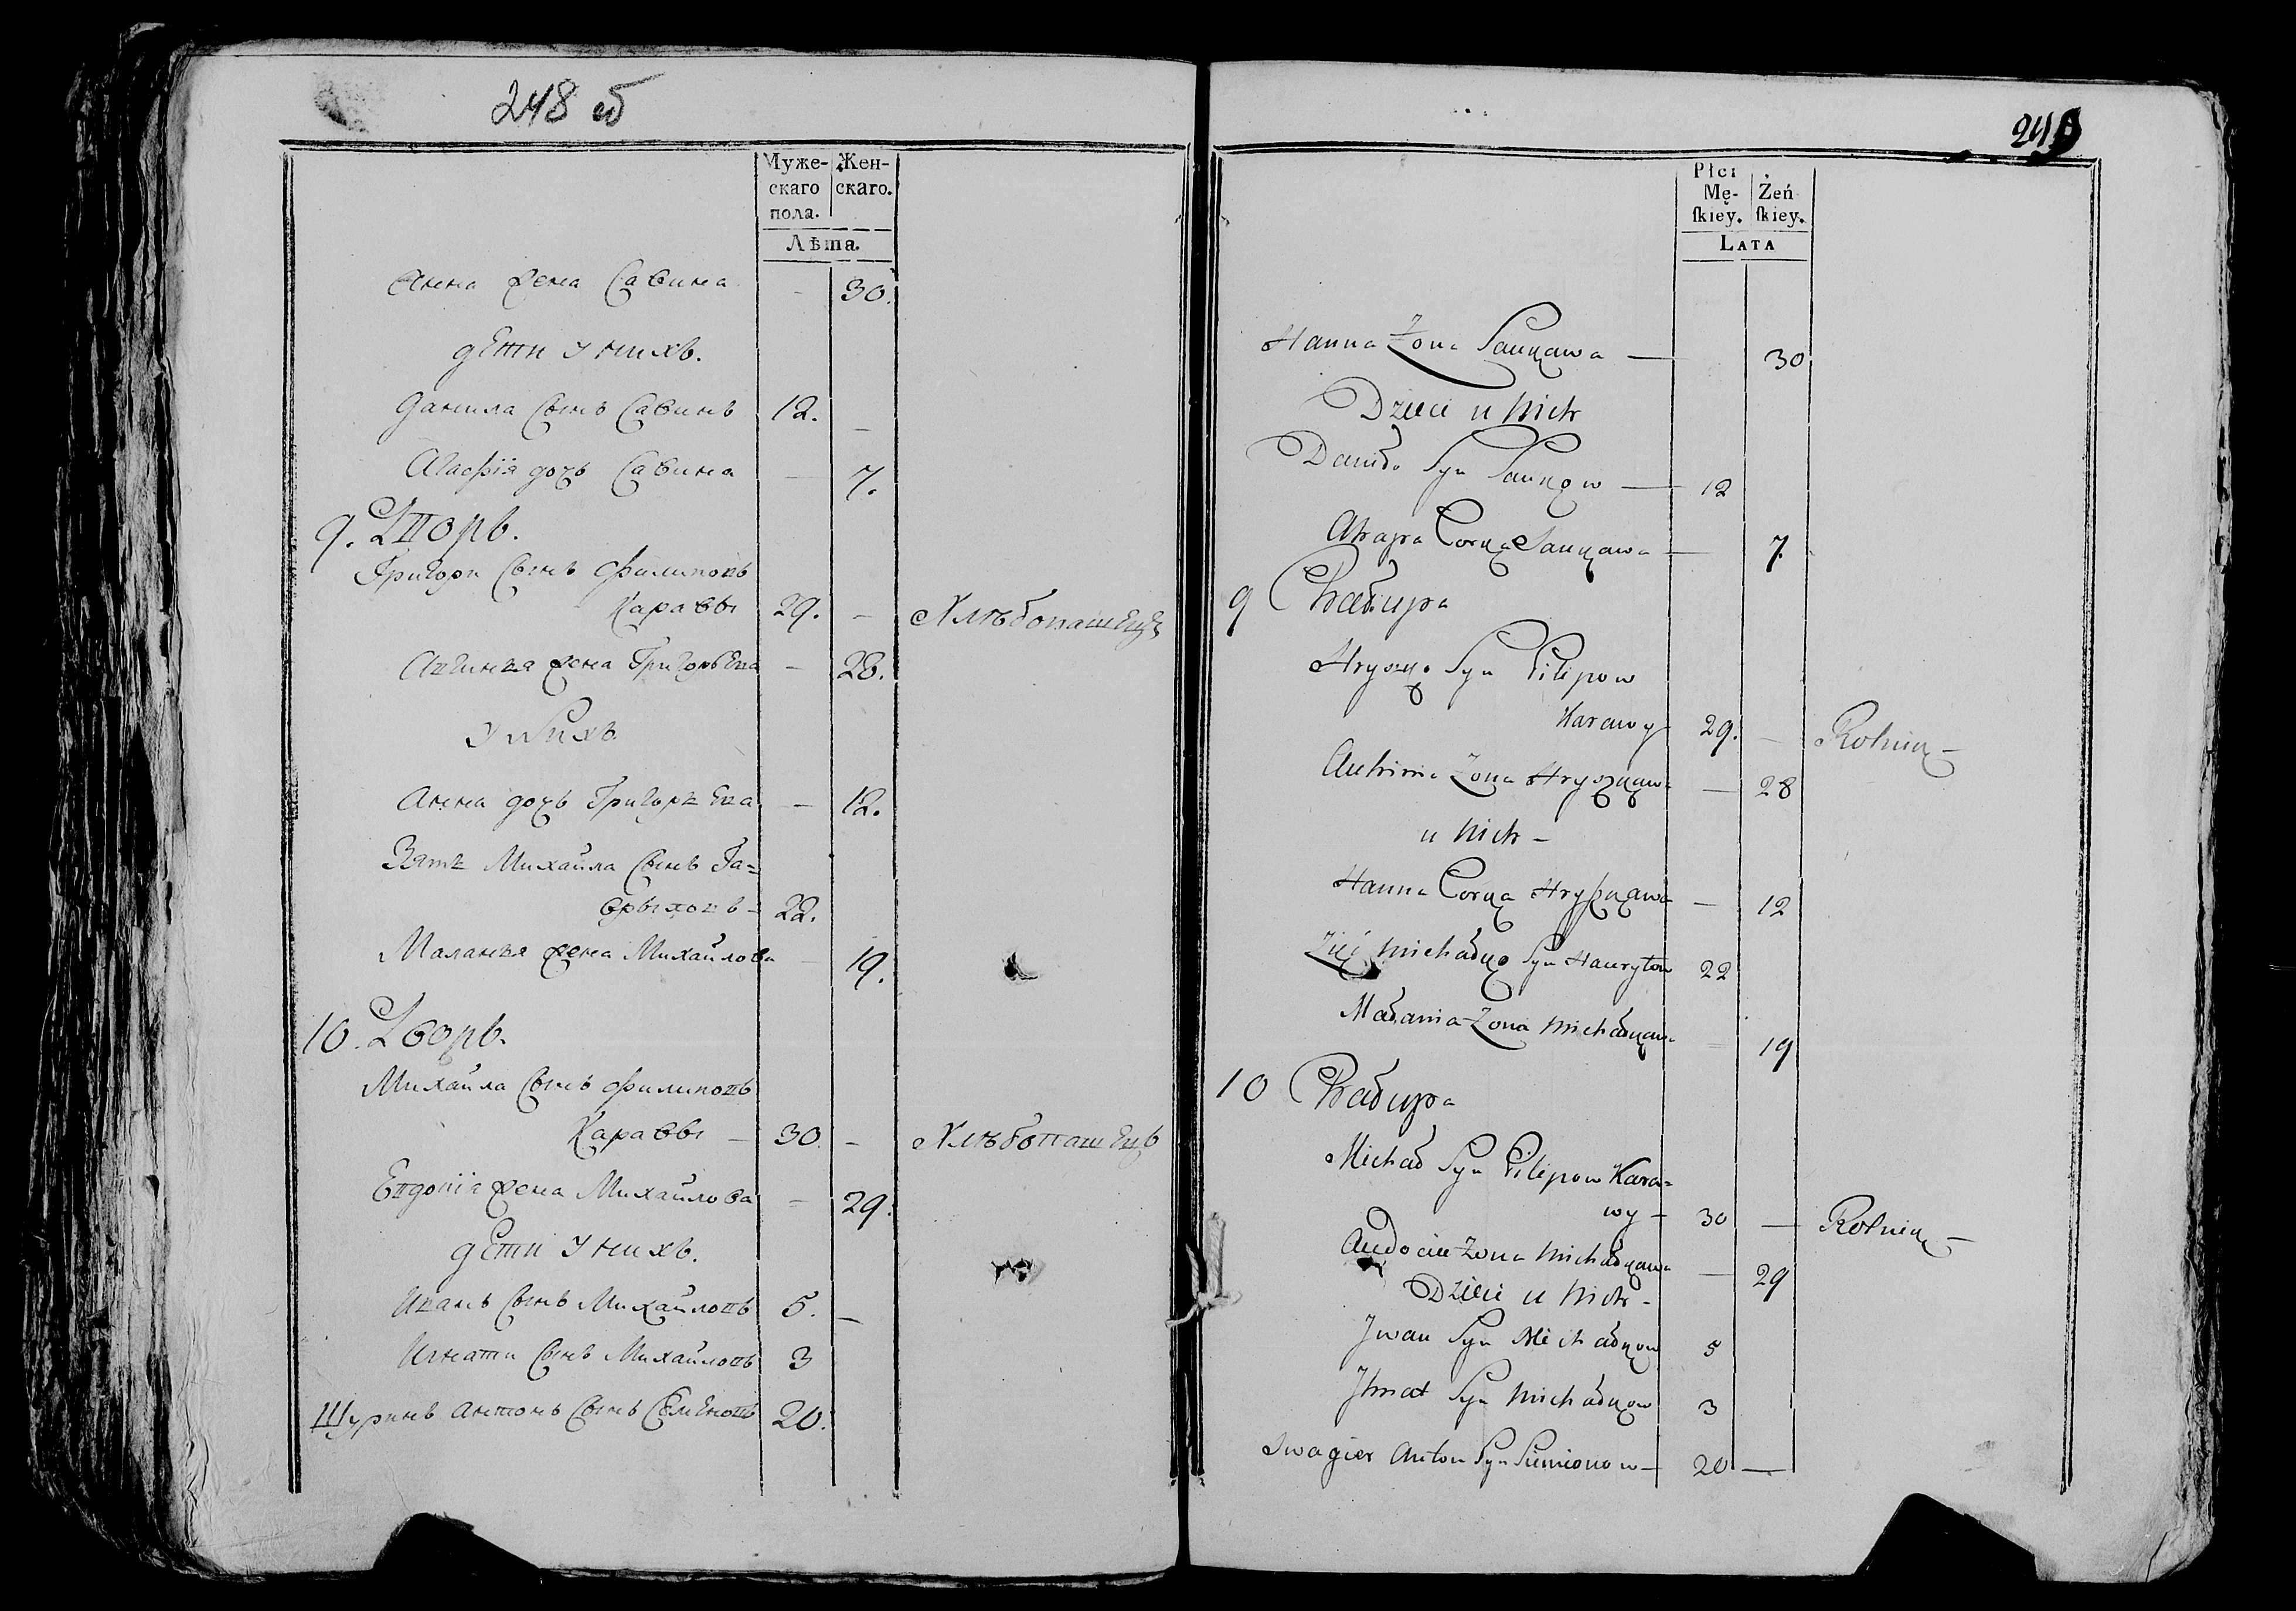 248 об
Муже-
скаго
пола.
Жен-
скаго.
Лѣта.
Анна жена Савина - 30.
дети У нихъ.
Данила Сынъ Савинъ 12. -
Агафія дочъ Савина - 7.
9. Дворъ.
Григори Сынъ Филиповъ
Каравы 29. - Хлѣбопашецъ
жена Григорьева - 28.
У нихъ
Анна дочъ Григорьева - 12.
Зять Михайла Сынъ Га=
врыловъ - 22.
Маланья жена Михайлова - 19.
10. Дворъ.
Михайла Сынъ Филиповъ
Каравы - 30 - Хлѣбопашецъ
Евдокія жена Михайлова - 29.
дети У нихъ.
Иванъ Сынъ Михайловъ 5. -
Игнати Сынъ Михайловъ 3
Шуринъ Антонъ Сынъ Семеновъ 20.
249
Płci
Mę-
skiey.
Żeń
skiey.
LATA
Hanna Żona Saukawa — 30
Dzieci u Nich
Daniło Syn Saukow — 12
Ahapa Corka Saukawa — 7
9 Chałupa
Hryszko Syn Pilipow
Karawy 29. - Rolnik -
Żona Hryszkawa — 28
u Nich -
Hanna Corka Hryszkawa - 12
Zięć Michałko Syn Hauryłow 22
Małania Żona Michałkawa - 19
10 Chałupa
Michał Syn Pilipow Kara=
wy - 30 — Rolnik -
Audocia Żona Michałkawa — 29
Dzieci u Nich -
Jwan Syn Michałkow 5
Jhnat Syn Michałkow 3
Swagier Anton Syn Siemionow — 20 —